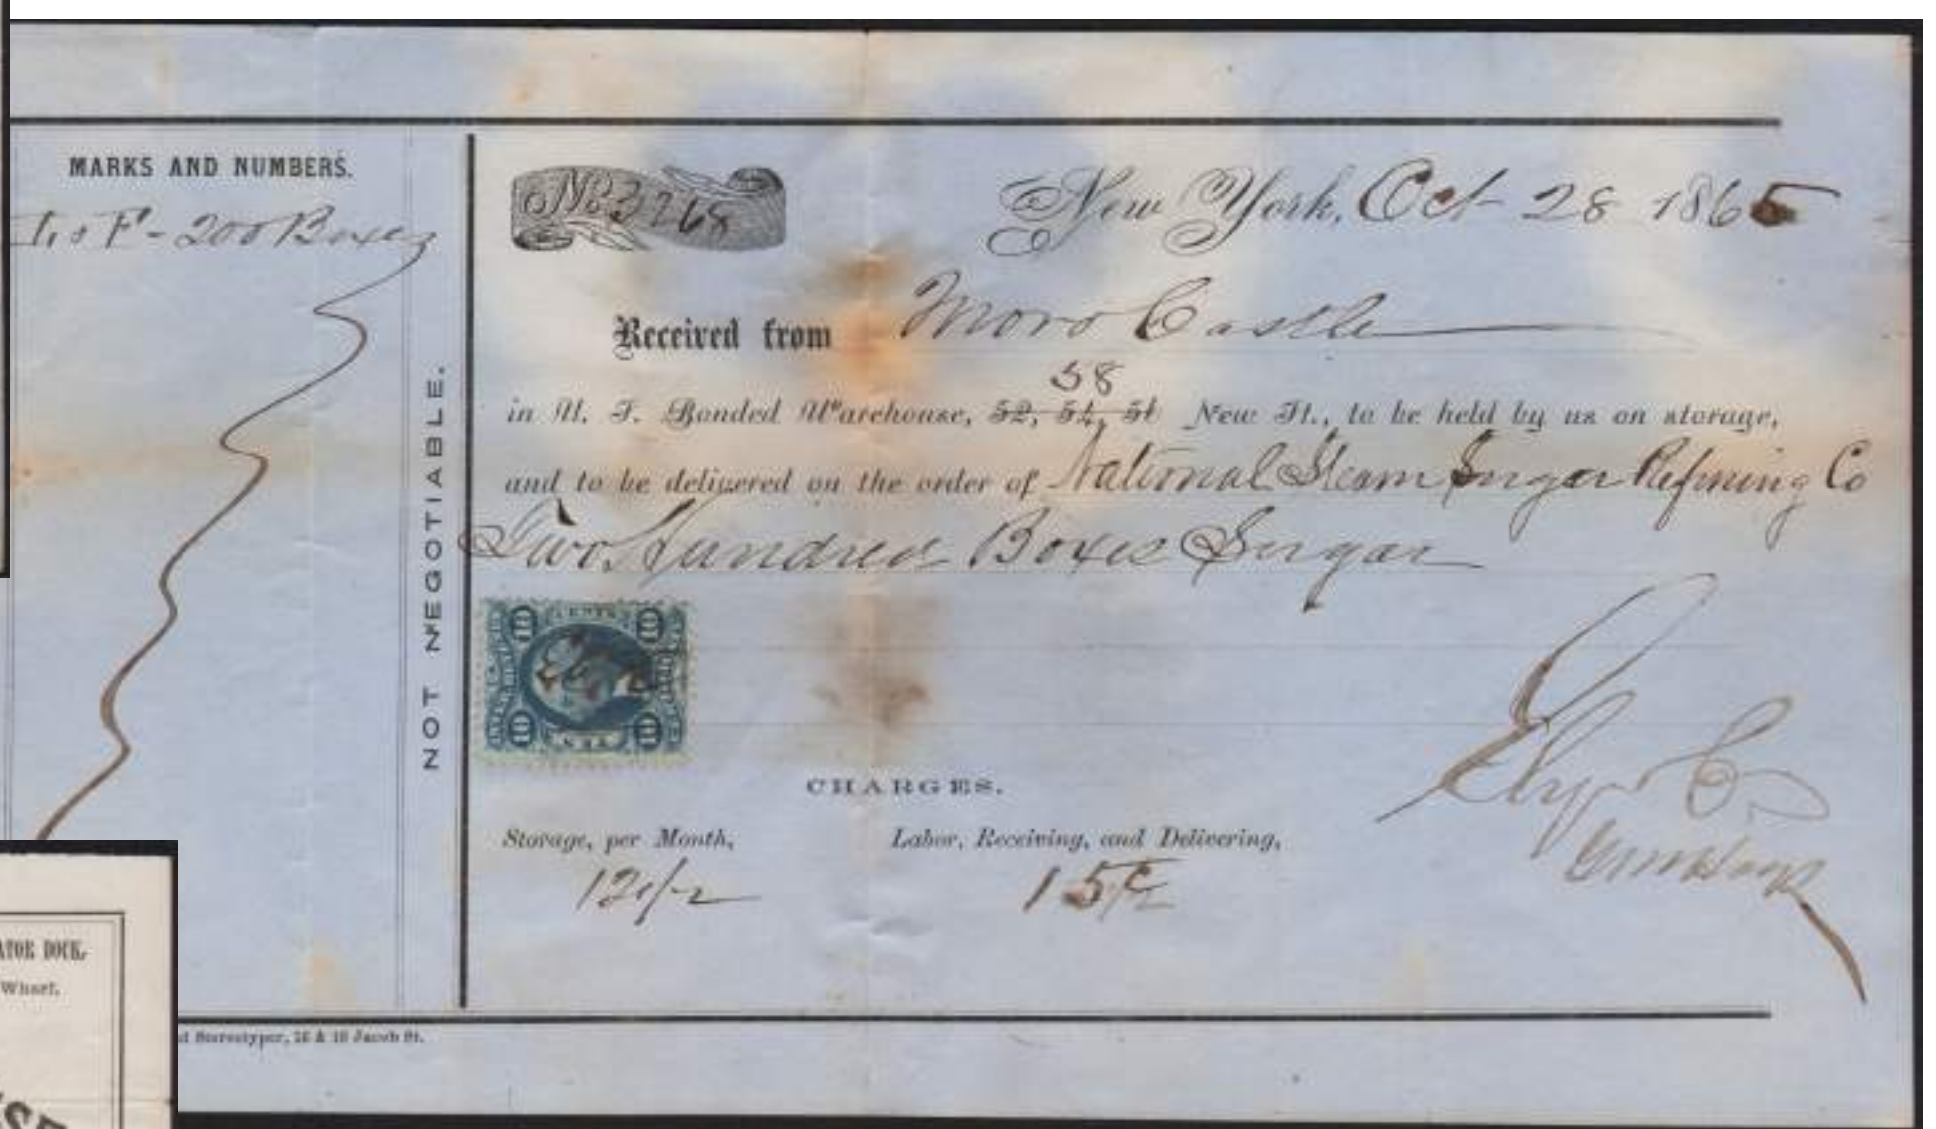 MARKS AND NUMBERS.
F - 200 Boxes
NOT NEGOTIABLE.
No 3268
New York, Oct 28 1865
Received from Moro Castle
58
in U. S. Bonded Warehouse, 52, 54, 56 New St., to be held by us on storage,
and to be delivered on the order of National Steam Sugar Refining Co
Two Hundred Boxes Sugar
10 CENTS 10
10 TEN 10
CHARGES.
Storage, per Month,
Labor, Receiving, and Delivering,
12 1/2
15
Stereotyper, 16 & 18 Jacob St.
DOCK,
Wharf,